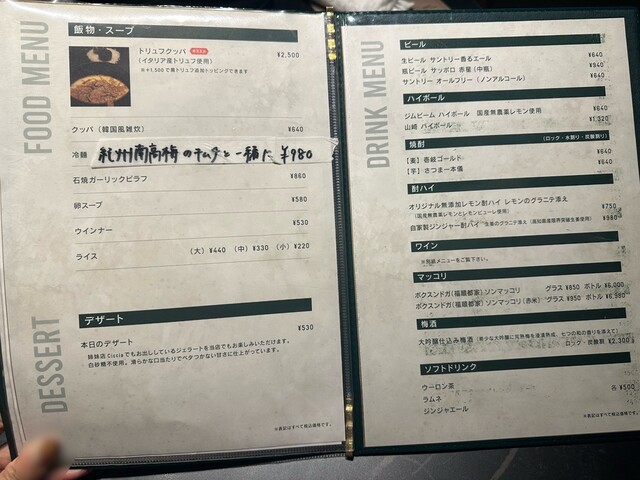 FOOD MENU
飯物・スープ
トリュフクッパ ¥2,500
(イタリア産トリュフ使用)
※+1,500で黒トリュフ追加トッピングできます
クッパ(韓国風雑炊) ¥640
冷麺 紀州南高梅のキムチと一緒に ¥980
石焼ガーリックピラフ ¥860
卵スープ ¥580
ウインナー ¥530
ライス (大)¥440 (中)¥330 (小)¥220
DESSERT
デザート
本日のデザート ¥530
姉妹店Cicciaでもお出ししているジェラートを当店でもお楽しみいただけます。
白砂糖不使用。滑らかな口当たりでベタつかない甘さに仕上がっています。
※表記はすべて税込価格です。
DRINK MENU
ビール
生ビール サントリー香るエール ¥640
瓶ビール サッポロ 赤星(中瓶) ¥940
サントリー オールフリー(ノンアルコール) ¥640
ハイボール
ジムビーム ハイボール 国産無農薬レモン使用 ¥640
山崎 ハイボール ¥1,320
焼酎 (ロック・水割り・炭酸割り)
【麦】壱岐ゴールド ¥640
【芋】さつま一本僊 ¥640
酎ハイ
オリジナル無添加レモン酎ハイ レモンのグラニテ添え ¥750
(国産無農薬レモンとレモンピューレ使用)
自家製ジンジャー酎ハイ 生姜のグラニテ添え ¥980
ワイン
※別紙メニューをご覧下さい。
マッコリ
ボクスンドガ(福順都家)ソンマッコリ グラス ¥850 ボトル ¥6,000
ボクスンドガ(福順都家)ソンマッコリ(赤米) グラス ¥950 ボトル ¥6,980
梅酒
大吟醸仕込み梅酒
ロック・炭酸割 ¥2,300
ソフトドリンク
ウーロン茶 各 ¥500
ラムネ
ジンジャエール
※表記はすべて税込価格です。